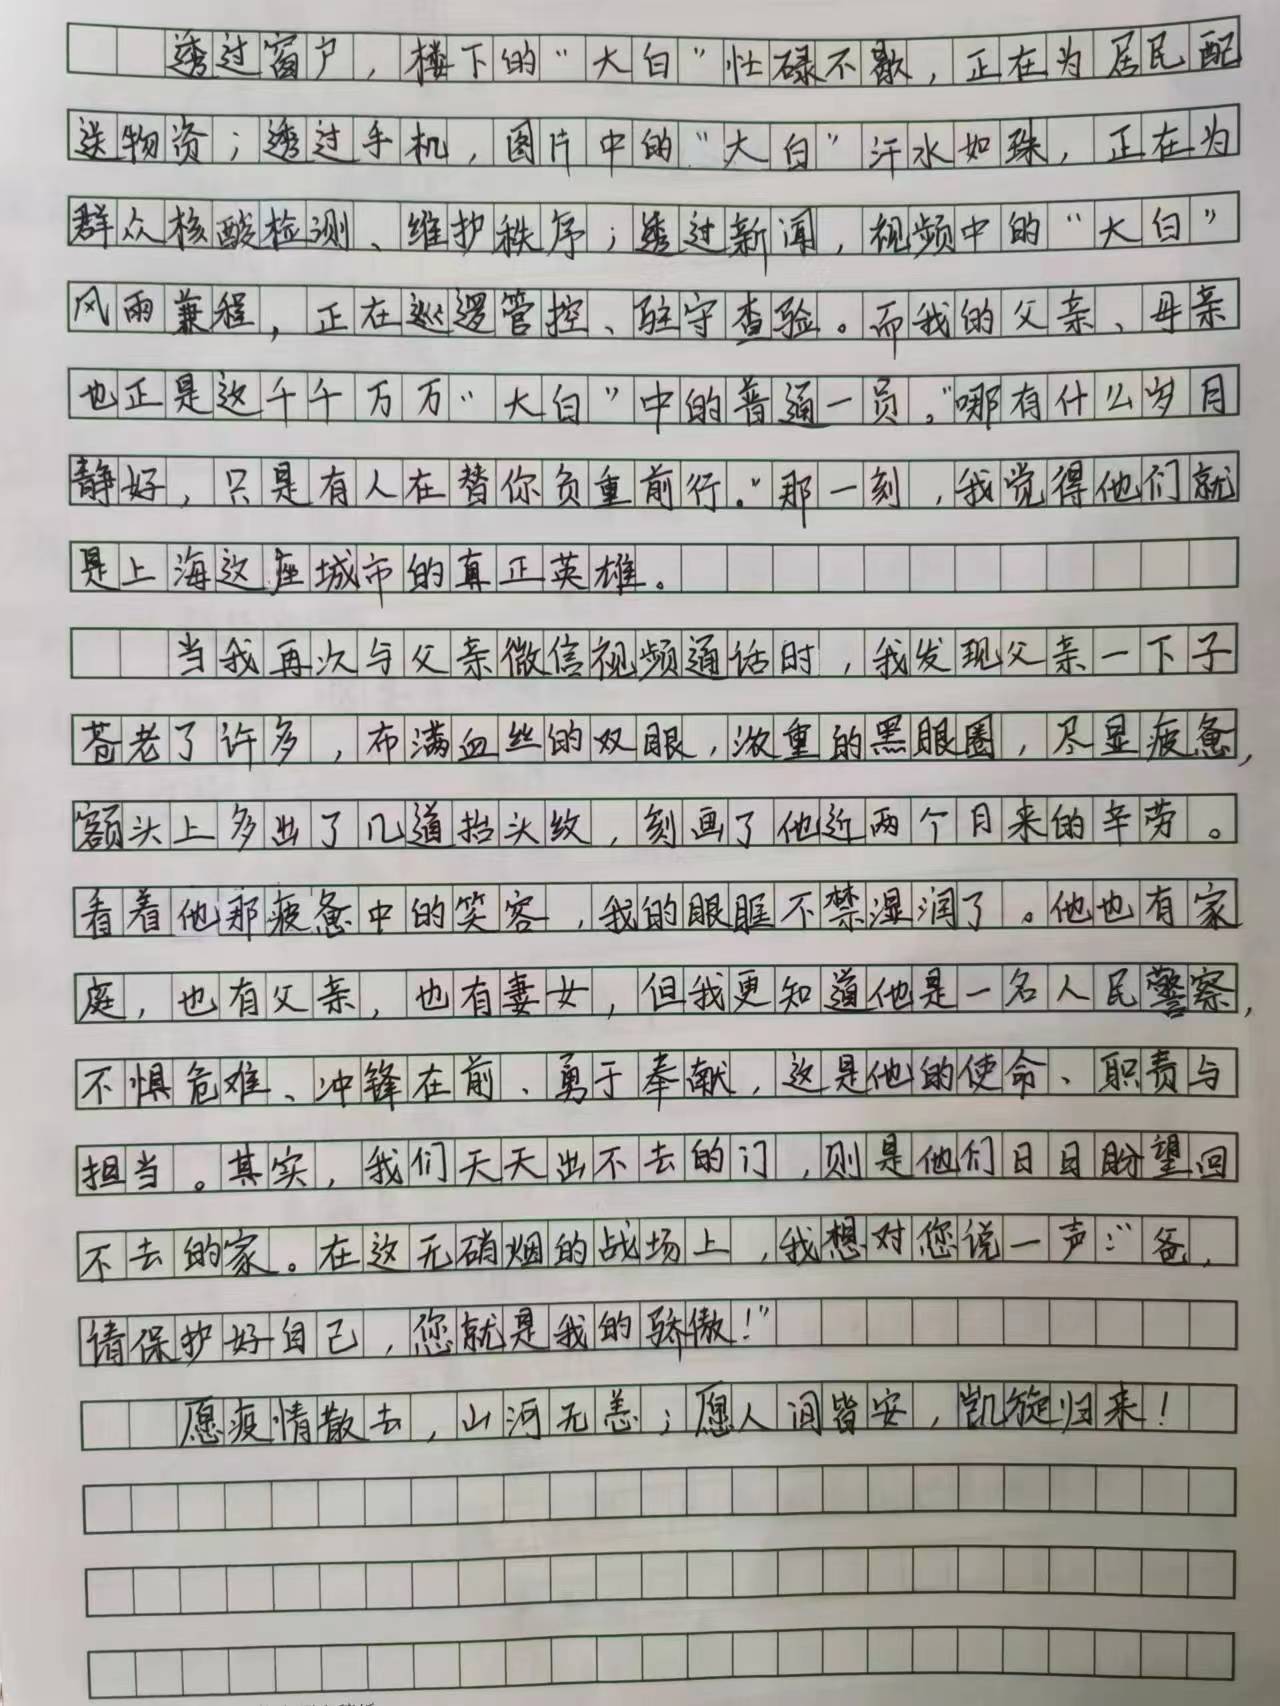 透过窗户，楼下的“大白”忙碌不歇，正在为居民配
送物资；透过手机，图片中的“大白”汗水如珠，正在为
群众核酸检测、维护秩序；透过新闻，视频中的“大白”
风雨兼程，正在巡逻管控、驻守查验。而我的父亲、母亲
也正是这千千万万“大白”中的普通一员。“哪有什么岁月
静好，只是有人在替你负重前行。”那一刻，我觉得他们就
是上海这座城市的真正英雄。
当我再次与父亲微信视频通话时，我发现父亲一下子
苍老了许多，布满血丝的双眼，浓重的黑眼圈，尽显疲惫，
额头上多出了几道抬头纹，刻画了他近两个月来的辛劳。
看着他那疲惫中的笑容，我的眼眶不禁湿润了。他也有家
庭，也有父亲，也有妻女，但我更知道他是一名人民警察，
不惧危难、冲锋在前、勇于奉献，这是他的使命、职责与
担当。其实，我们天天出不去的门，则是他们日日盼望回
不去的家。在这无硝烟的战场上，我想对您说一声：“爸，
请保护好自己，您就是我的骄傲！”
愿疫情散去，山河无恙；愿人间皆安，凯旋归来！